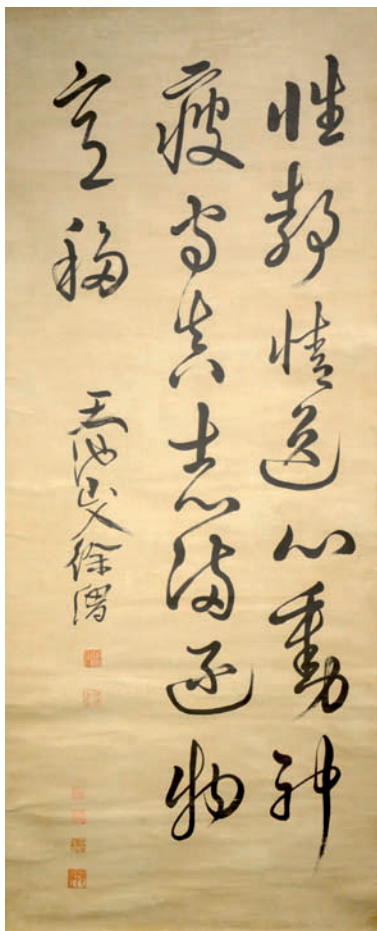 性靜情逸心動神
疲守真志滿逐物
意移
天池山人徐渭